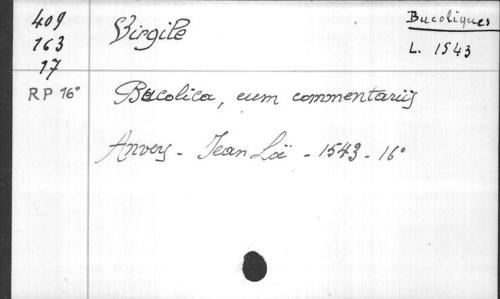 409
163
17
RP 16°
Virgile
Bucoliques
L. 1543
Bucolica, cum commentariis
Anvers - Jean Loë - 1543 - 16°